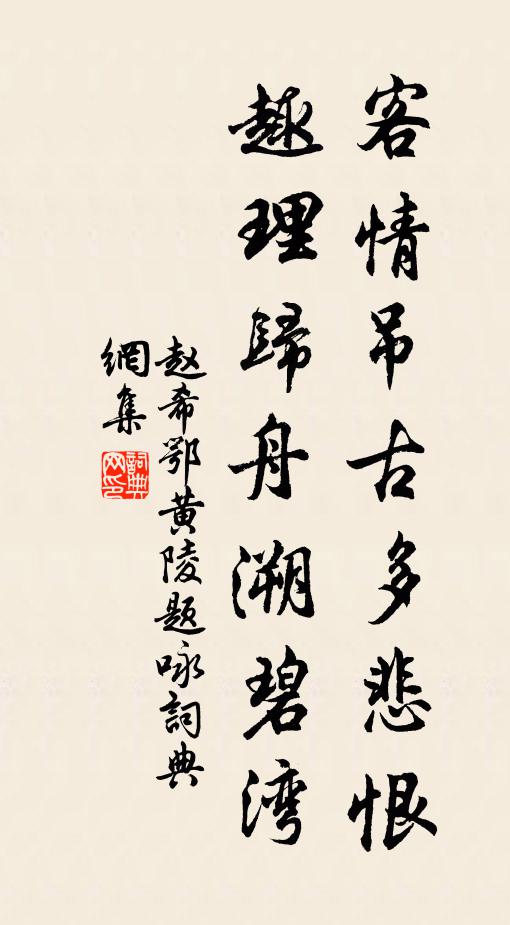 客情吊古多悲恨
趣理歸舟溯碧湾
赵希鄂黄陵题咏詞典
網集
詞典网印